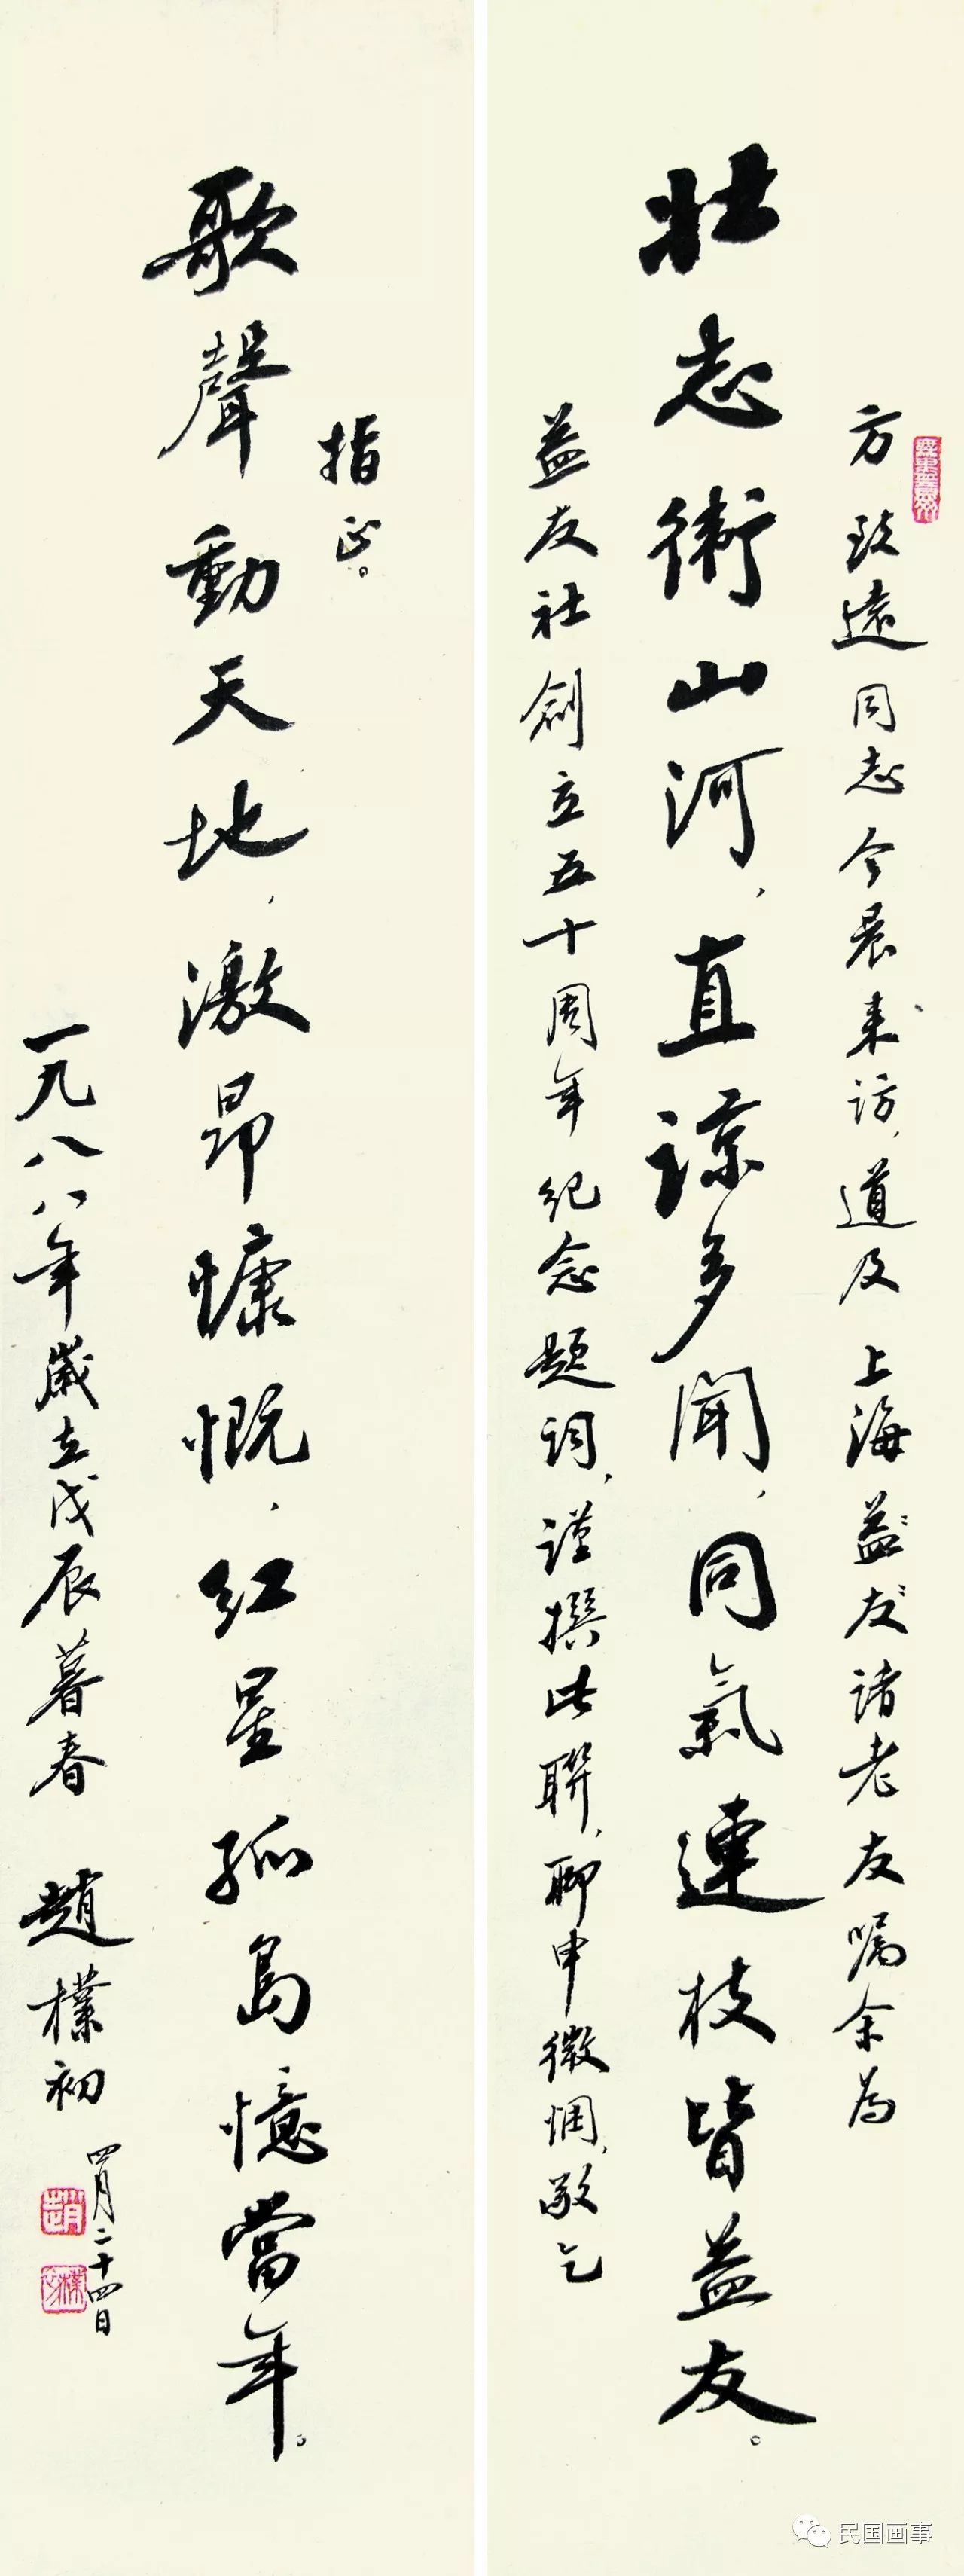 方致遠同志今晨来访，道及上海益友诸老友嘱余为
壮志衛山河，直諒多聞，同氣連枝皆益友。
益友社創立五十周年纪念题词，谨撰此联，聊申微悃，敬乞
指正。
歌聲動天地，激昂慷慨，红星孤島憶當年。
一九八八年歲在戊辰暮春 趙樸初
四月二十四日
趙
樸初
民国画事